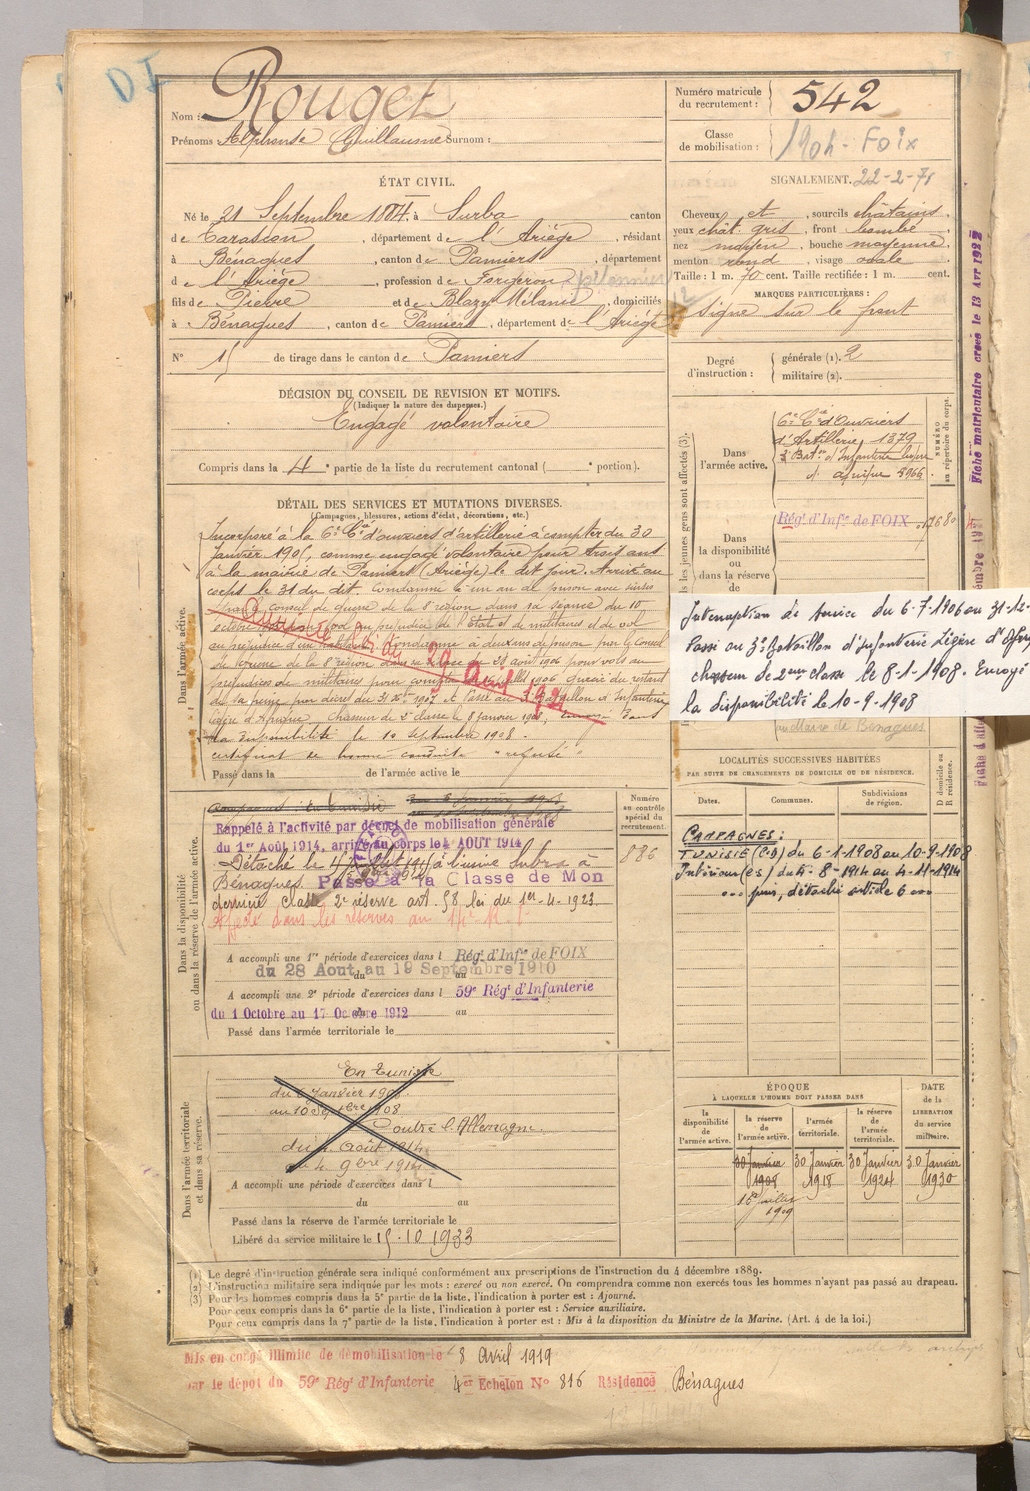 DI
Nom : Rouget
Prénoms : Alphonse Guillaume Surnom :
Numéro matricule du recrutement : 542
Classe de mobilisation : 1904 - Foix
ÉTAT CIVIL.
Né le 21 Septembre 1884, à Surba canton
de Tarascon, département de l'Ariège, résidant
à Bénagues, canton de Pamiers, département
de l'Ariège, profession de Forgeron
fils de Pierre et de Blazy Mélanie, domiciliés
à Bénagues, canton de Pamiers, département de l'Ariège
N° 15 de tirage dans le canton de Pamiers
SIGNALEMENT. 22-2-71
Cheveux et, sourcils châtains,
yeux chât gris, front bombé
nez moyen, bouche moyenne,
menton rond, visage ovale
Taille : 1 m. 70 cent. Taille rectifiée : 1 m. cent.
MARQUES PARTICULIÈRES :
Signe sur le front
Degré d'instruction : générale (1). 2
militaire (2).
DÉCISION DU CONSEIL DE REVISION ET MOTIFS.
(Indiquer la nature des dispenses.)
Engagé volontaire
Compris dans la 4e partie de la liste du recrutement cantonal ( e portion).
DÉTAIL DES SERVICES ET MUTATIONS DIVERSES.
(Campagnes, blessures, actions d'éclat, décorations, etc.)
Dans l'armée active.
Incorporé à la 6e Cie d'ouvriers d'artillerie à compter du 30
Janvier 1905, comme engagé volontaire pour trois ans
à la mairie de Pamiers (Ariège) le dit jour. Arrivé au
corps le 31 du dit. Condamné à un an de prison avec sursis
conseil de Guerre de la 8e région dans sa séance du 10
octobre au préjudice de l'Etat et de militaires et de vol
au préjudice d'un habitant. Condamné à deux ans de prison par le Conseil
de Guerre de la 8e région dans sa séance du 23 août 1906 pour vols au
préjudice de militaires
de sa peine par décret du 31 Xbre 1907 et Passé au 3e Bataillon d'Infanterie
légère d'Afrique Chasseur de 2e classe le 8 janvier 1908, dans
la Disponibilité le 10 septembre 1908.
certificat de bonne conduite "refusé"
29 Avril
Passé dans la de l'armée active le
Dans l'armée active.
6e Cie d'ouvriers
d'Artillerie 1379
3e Baton d'Infanterie légère
d'afrique 8966
NUMÉRO au répertoire du corps.
Régt d'Infie de FOIX
Dans la disponibilité ou dans la réserve de
Interruption de service du 6-7-1906 au 31-12-
Passé au 3e Bataillon d'Infanterie Légère d'Afriq
chasseur de 2eme classe le 8-1-1908. Envoyé
la disponibilité le 10-9-1908
Maire de Bénagues
Fiche matriculaire créée le 13 Avr 192
Dans la disponibilité ou dans la réserve de l'armée active.
Campagnes : En Tunisie
Rappelé à l'activité par décret de mobilisation générale
du 1er Août 1914, arrivé au corps le 4 AOUT 1914
Détaché le à l'usine Lubra à
Bénagues. Passé à la Classe de Mon
dernière classe 2e réserve art. 58 loi du 1er-4-1923
Affecté dans les réserves au
A accompli une 1re période d'exercices dans l Régt d'Infie de FOIX
du 28 Aout au 19 Septembre 1910
A accompli une 2e période d'exercices dans l 59e Régt d'Infanterie
du 1 Octobre au 17 Octobre 1912 au
Passé dans l'armée territoriale le
Numéro au contrôle spécial du recrutement.
886
LOCALITÉS SUCCESSIVES HABITÉES
PAR SUITE DE CHANGEMENTS DE DOMICILE OU DE RÉSIDENCE.
Dates. Communes. Subdivisions de région. D domicile ou R résidence.
CAMPAGNES :
TUNISIE (CD) du 6-1-1908 au 10-9-1908
Intérieur (CS) du 4-8-1914 au 4-11-1914
puis, détaché article 6
Dans l'armée territoriale et dans sa réserve.
En Tunisie
du 6 Janvier 1908
au 10 Septbre 1908
Contre l'Allemagne.
du 4 Août 1914
au 4 9bre 1914
A accompli une période d'exercices dans l
du au
Passé dans la réserve de l'armée territoriale le
Libéré du service militaire le 15.10.1933
ÉPOQUE À LAQUELLE L'HOMME DOIT PASSER DANS
la disponibilité de l'armée active. la réserve de l'armée active. l'armée territoriale. la réserve de l'armée territoriale. DATE de la LIBÉRATION du service militaire.
30 Janvier 1908 30 Janvier 1918 30 Janvier 1924 30 Janvier 1930
1er Juillet 1909
(1) Le degré d'instruction générale sera indiqué conformément aux prescriptions de l'instruction du 4 décembre 1889.
(2) L'instruction militaire sera indiquée par les mots : exercé ou non exercé. On comprendra comme non exercés tous les hommes n'ayant pas passé au drapeau.
(3) Pour les hommes compris dans la 5e partie de la liste, l'indication à porter est : Ajourné.
Pour ceux compris dans la 6e partie de la liste, l'indication à porter est : Service auxiliaire.
Pour ceux compris dans la 7e partie de la liste, l'indication à porter est : Mis à la disposition du Ministre de la Marine. (Art. 4 de la loi.)
Mis en congé illimité de démobilisation le 8 Avril 1919
par le dépôt du 59e Régt d'Infanterie 4er Echelon N° 816 Résidence Bénagues